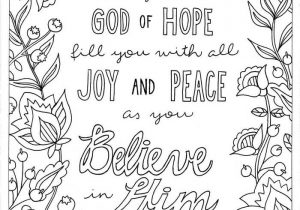 GOD OF HOPE
fill you with all
JOY AND PEACE
as you
Believe
in Him